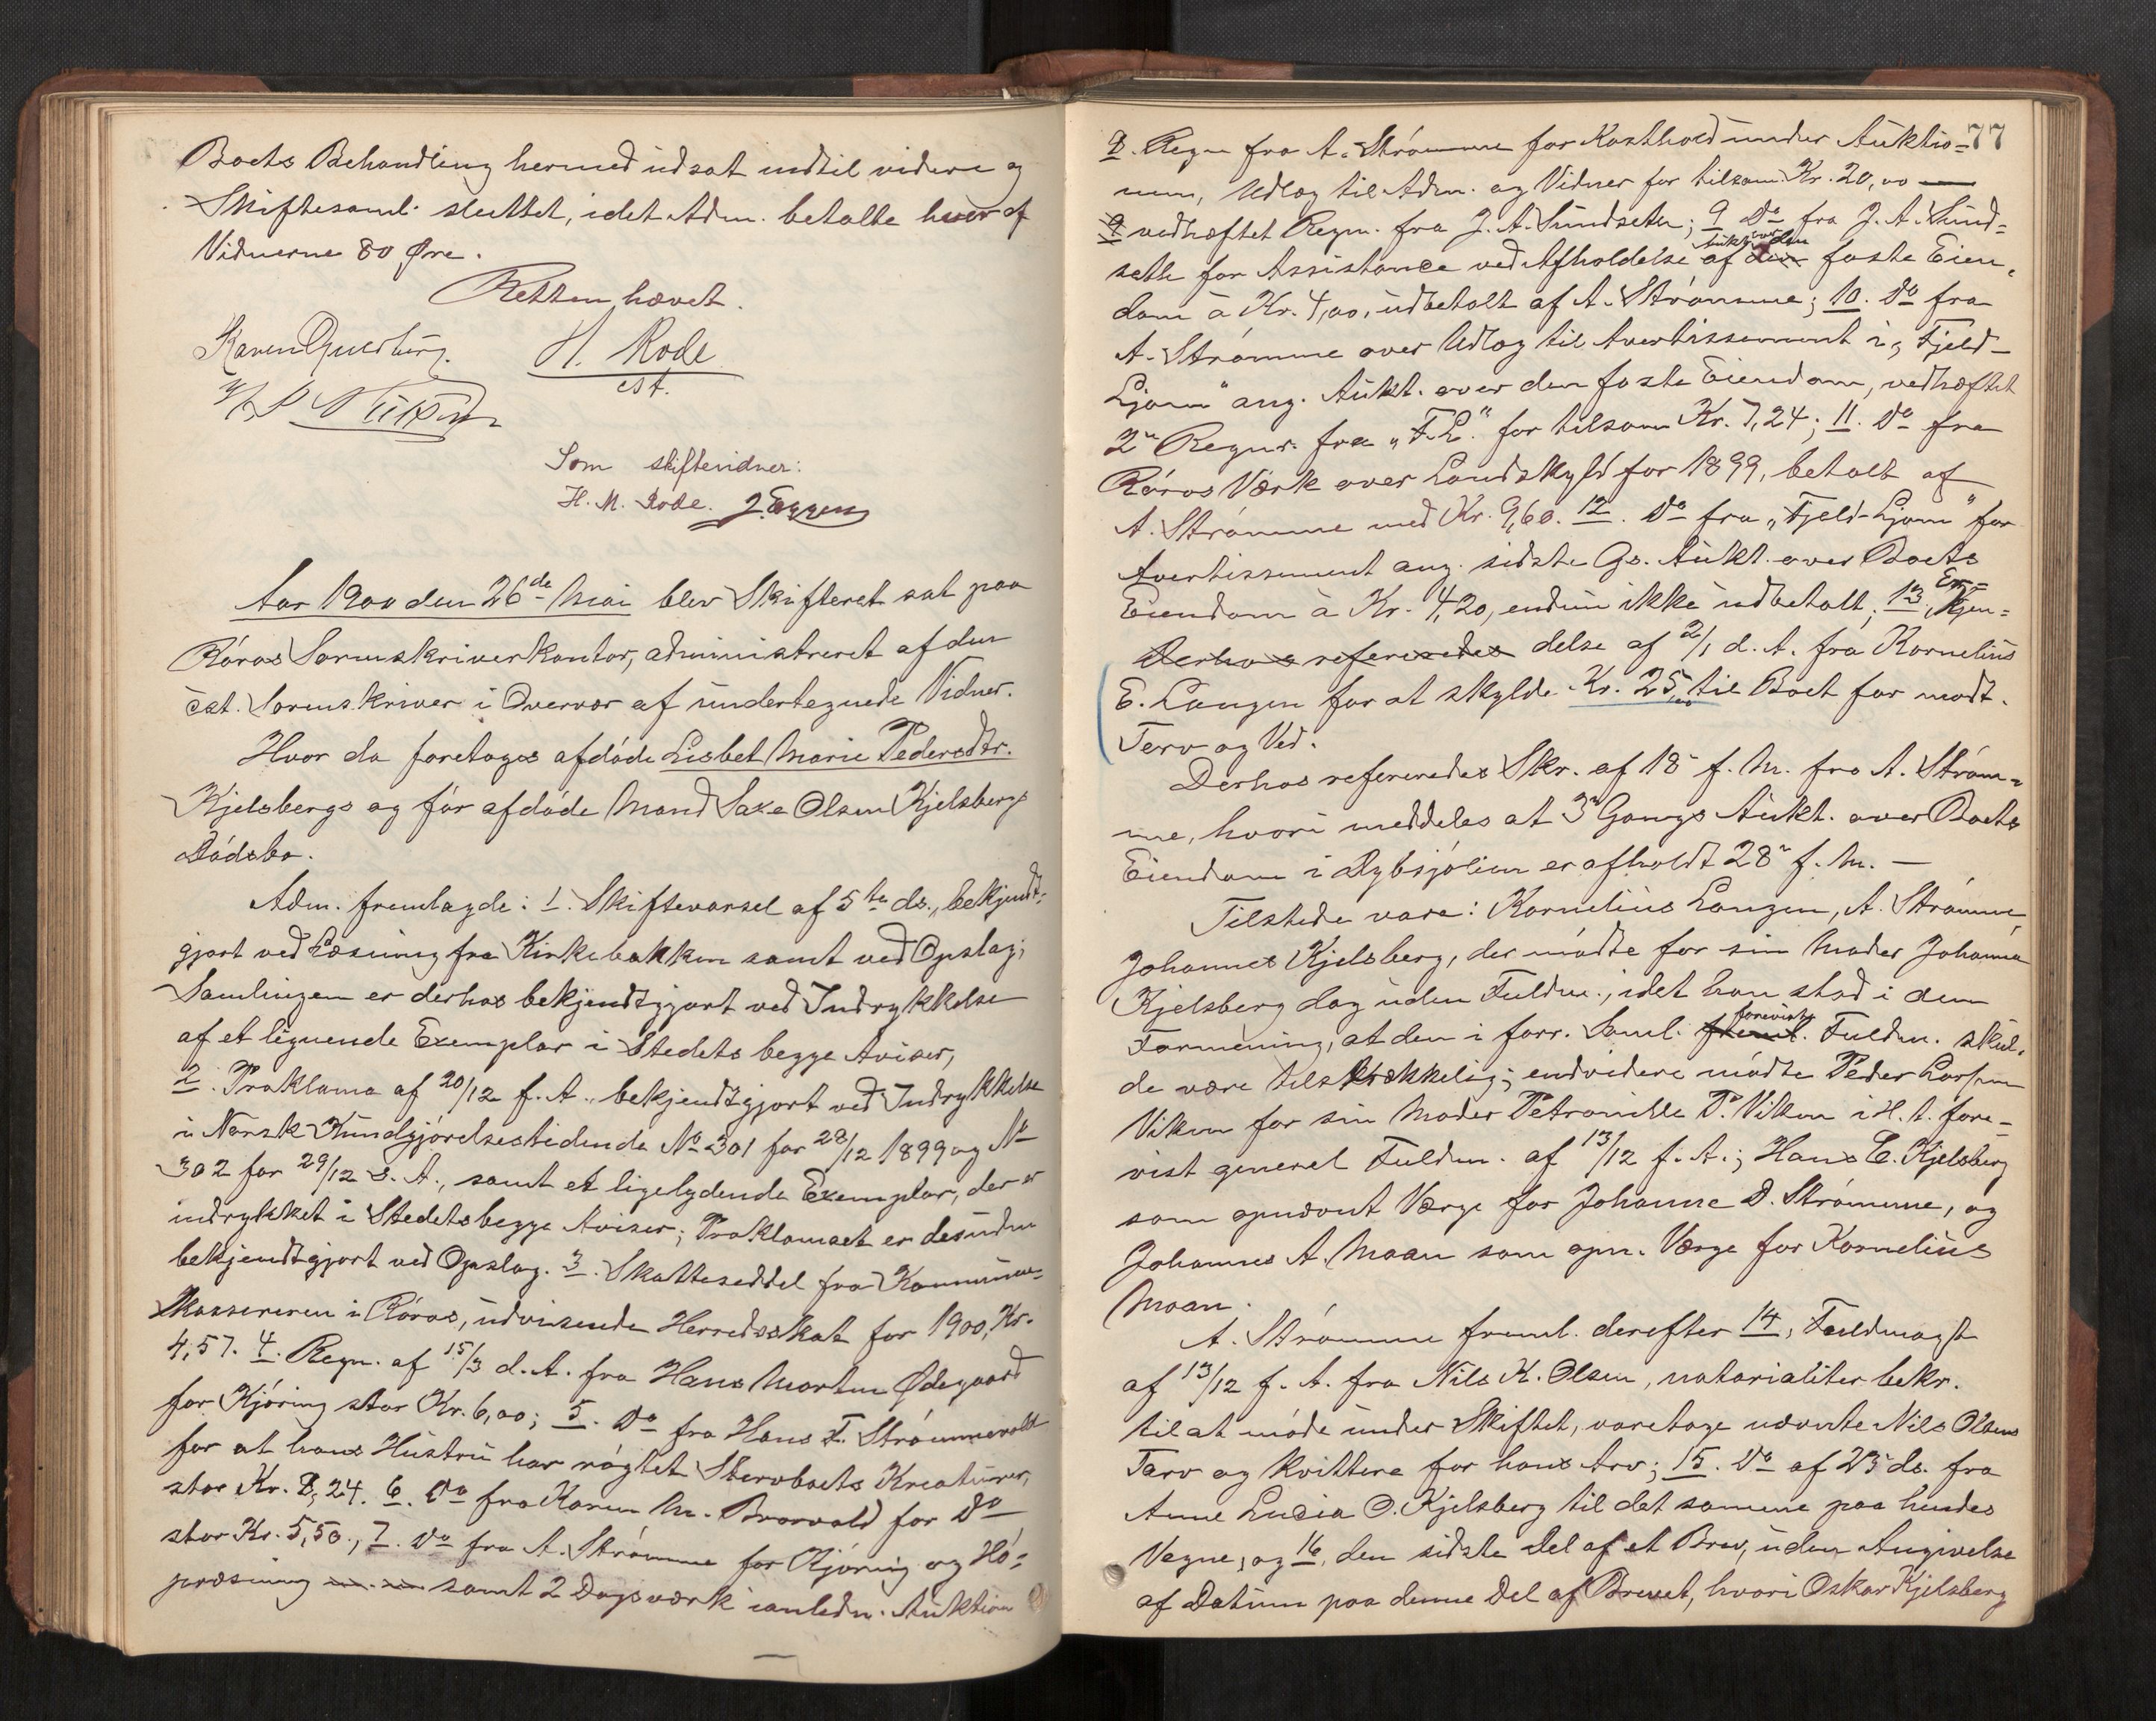 Boets Behandling hermed udsat indtil videre og
Skiftesaml. sluttet, idet Adm. betalte hver af
Vidnerne 80 Øre.
Retten hævet.
H. Rode
cst.
Som skiftevidner:
H. M. Rode. J. Eggen
Aar 1900 den 26de Mai blev Skifteret sat paa
Röros Sorenskriverkontor, administreret af den
cst. Sorenskriver i Overvær af undertegnede Vidner.
Hvor da foretoges afdöde Lisbet Marie Pedersdtr.
Kjelsbergs og før afdöde Mand Saxe Olsen Kjelsbergs
Dödsbo.
Adm. fremlagde: 1. Skiftevarsel af 5te ds., bekjendt-
gjort ved Læsning fra Kirkebakken samt ved Opslag;
Samlingen er derhos bekjendtgjort ved Indrykkelse
af et lignende Exemplar i Stedets begge Aviser,
2. Proklama af 20/12 f. A. bekjendtgjort ved Indrykkelse
i Norsk Kundgjörelsestidende No 301 for 28/12 1899 og No
302 for 29/12 s. A., samt et ligelydende Exemplar, der er
indrykket i Stedets begge Aviser; Proklamaet er desuden
bekjendtgjort ved Opslag. 3. Skatteseddel fra Kommune-
kassereren i Röros, udvisende Herredsskat for 1900, Kr.
4,57. 4. Regn. af 15/3 d. A. fra Hans Morten Ødegaard
for Kjöring stor Kr. 6,00; 5. Do fra Hans F. Strömmevold
for at hans Hustru har rögtet Stervboets Kreaturer,
stor Kr. 8,24. 6. Do fra Karen M. Brovold for Do
stor Kr. 5,50., 7. Do fra A. Strömme for Kjöring og Hö-
presning samt 2 Dagsværk i anledn. Auktion
77
8. Regn fra A. Strömme for Kosthold under Auktio-
nen, Udlæg til Adm. og Vidner for tilsam. Kr. 20,00 —
vedhæftet Regn. fra J. A. Sundseth; 9 Do fra J. A. Sund-
seth for Assistance ved Afholdelse af Aukt. over den faste Eien-
dom à Kr. 4,00, udbetalt af A. Strömme; 10. Do fra
A. Strömme over Udlæg til Avertissement i „Fjeld-
Ljom" ang. Aukt. over den faste Eiendom, vedhæftet
2 Regnr. fra „F. L." for tilsam Kr. 7,24; 11. Do fra
Röros Værk over Landskyld for 1899, betalt af
A. Strömme med Kr. 9,60. 12. Do fra „Fjeld-Ljom" for
Avertissement ang. sidste Gs. Aukt. over Boets
Eiendom à Kr. 4,20, endnu ikke udbetalt; 13. Er-kjen-
Derhos refereredes delse af 2/1 d. A. fra Kornelius
E. Langen for at skylde Kr. 25,00 til Boet for modt.
Torv og Ved.
Derhos refereredes Skr. af 18 f. M. fra A. Ström-
me, hvori meddeles at 3 Gangs Aukt. over Boets
Eiendom i Dybsjölien er afholdt 28 f. M. —
Tilstede vare: Kornelius Langen, A. Strömme,
Johannes Kjelsberg, der mödte for sin Moder Johanna
Kjelsberg dog uden Fuldm., idet han stod i den
Formening, at den i forr. Saml. foreviste Fuldm. skul-
de være tilstrækkelig; endvidere mödte Peder Larsen
Viken for sin Moder Petronille P. Viken i H. t. fore-
vist generel Fuldm. af 13/12 f. A.; Hans E. Kjelsberg
som opnævnt Værge for Johanne D. Strömme, og
Johannes A. Moan som opn. Værge for Kornelius
Moan.
A. Strömme freml. derefter 14, Fuldmagt
af 13/12 f. A. fra Nils K. Olsen, notarialiter bekr.
til at möde under Skiftet, varetage nævnte Nils Olsens
Tarv og kvittere for hans Arv; 15. Do af 23 ds. fra
Anne Lucia O. Kjelsberg til det samme paa hendes
Vegne, og 16, den sidste Del af et Brev, uden Angivelse
af Datum paa denne Del af Brevet, hvori Oskar Kjelsberg